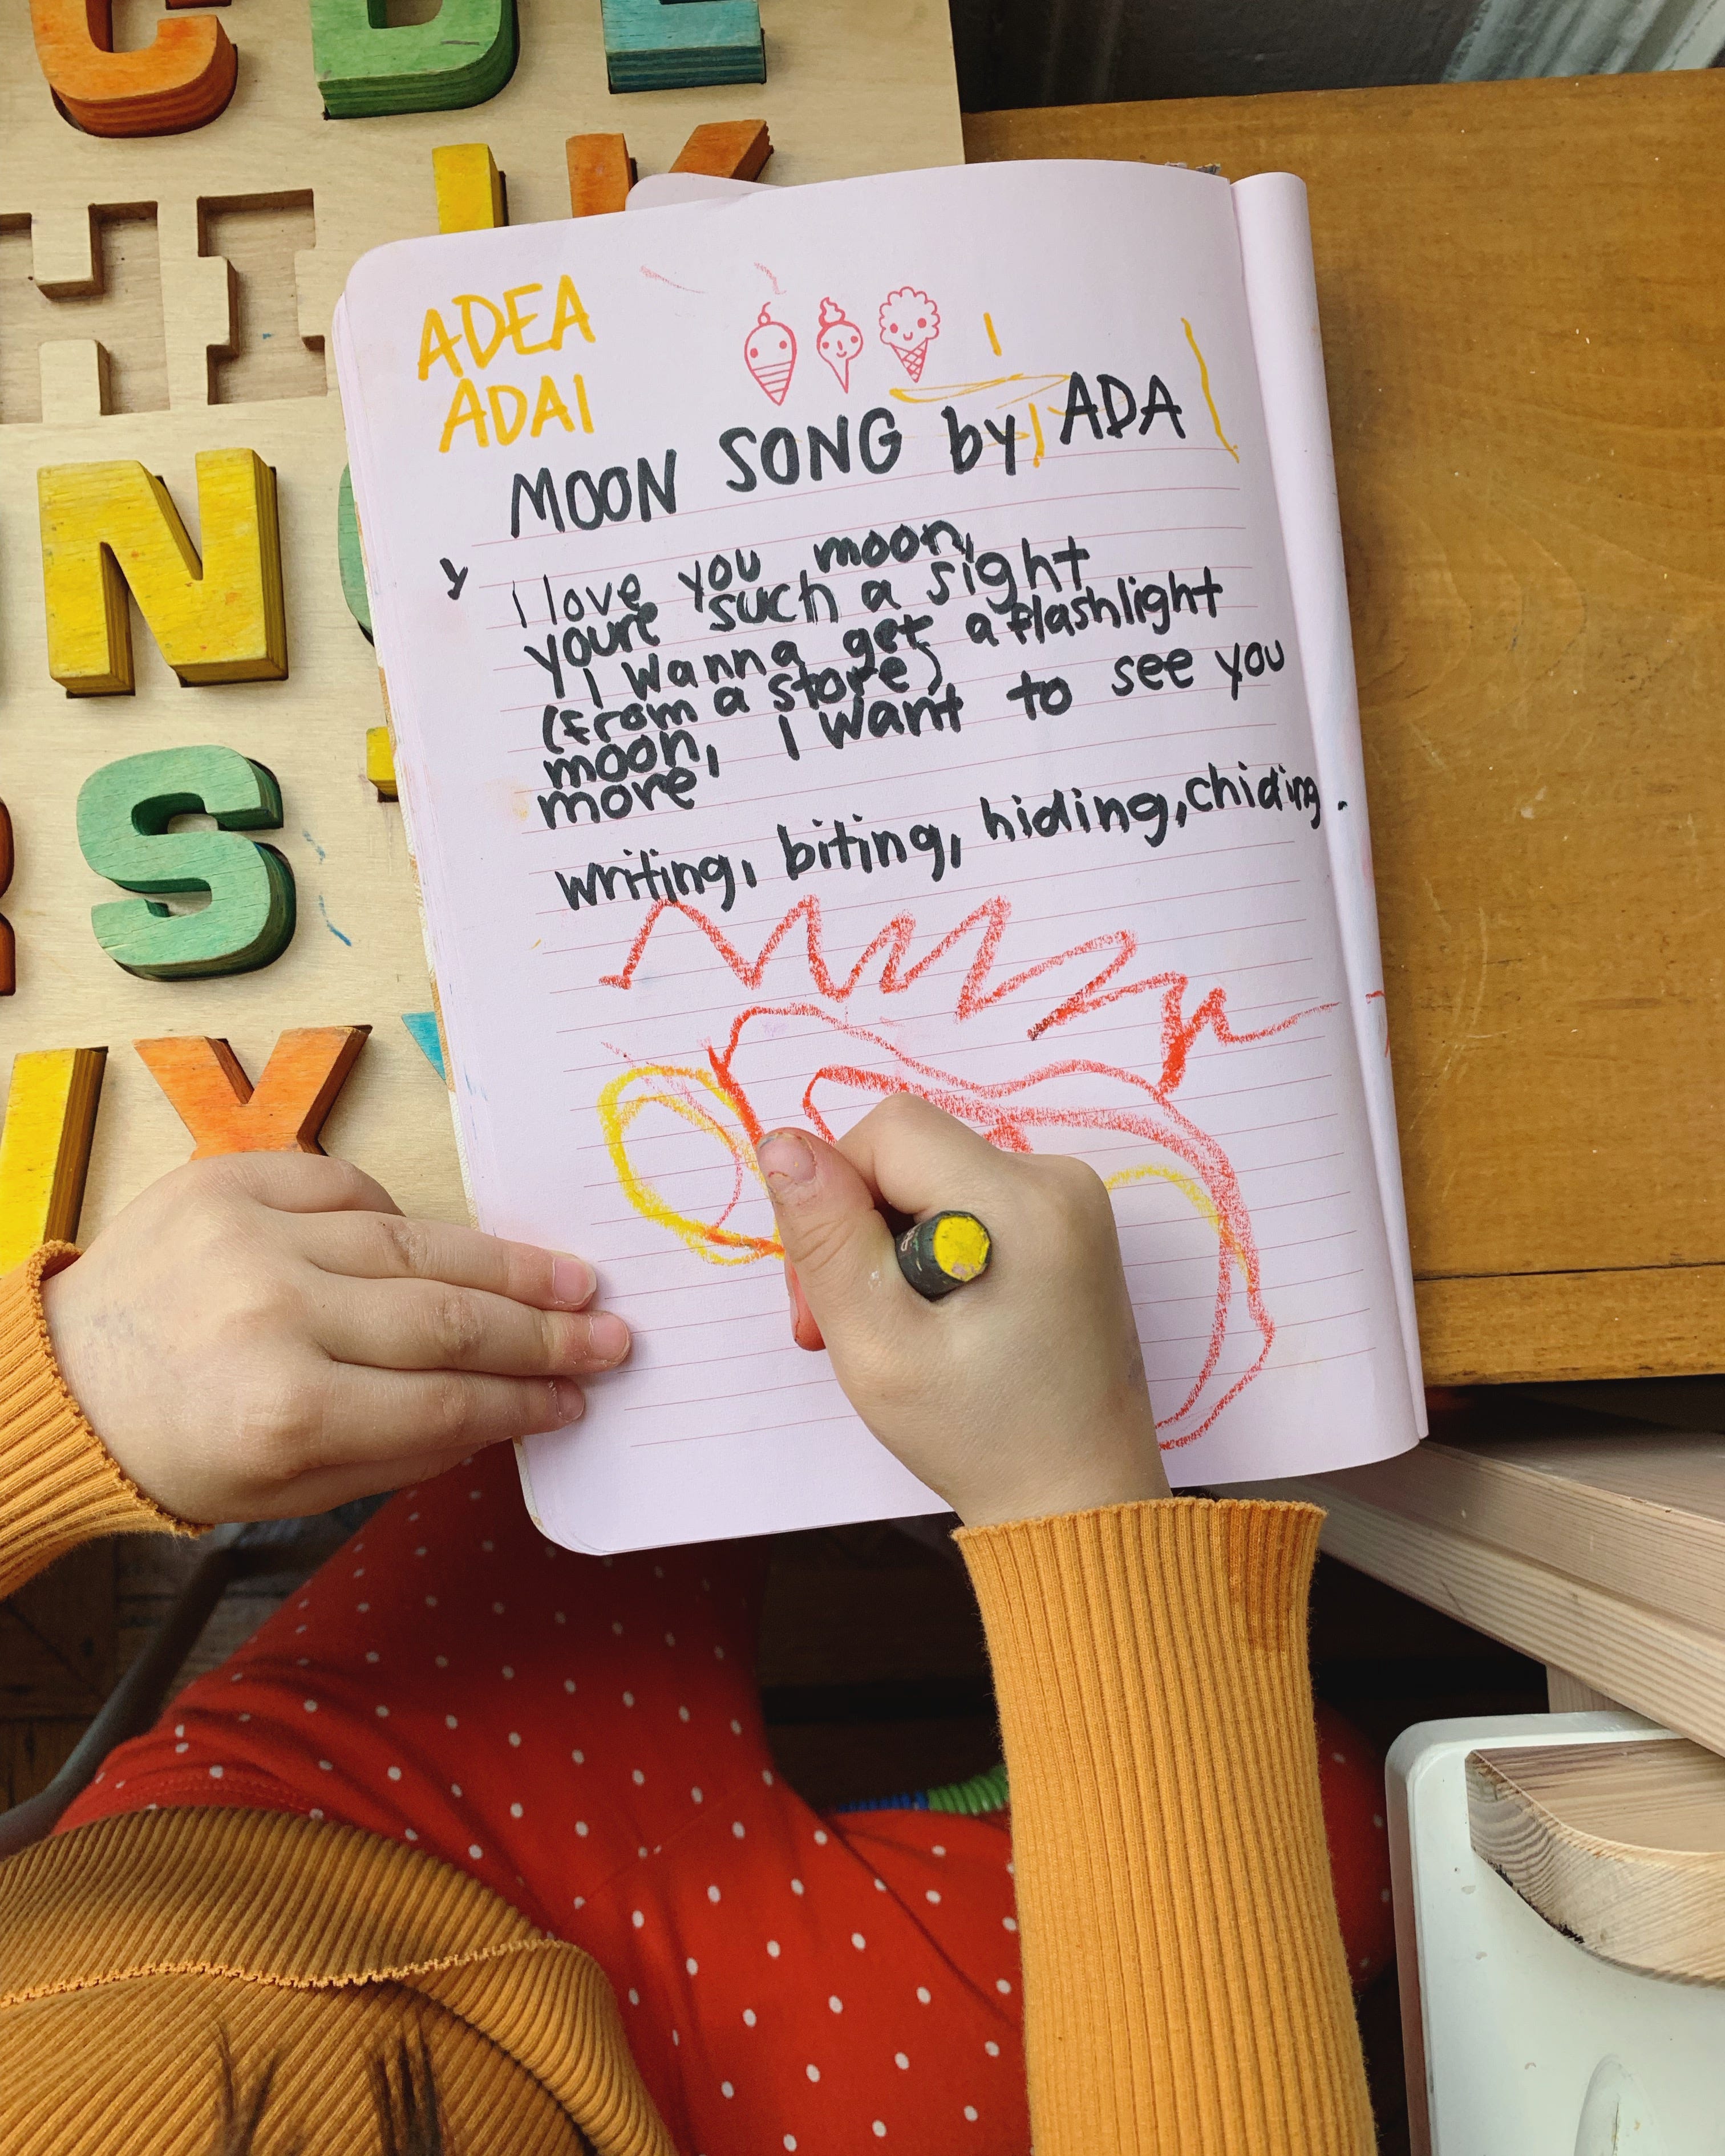 C D E
K
ADEA
ADAI
MOON SONG by ADA
N
y
I love you moon,
youre such a sight
I wanna get a flashlight
(from a store)
moon, I want to see you
more
S
writing, biting, hiding, chiding.